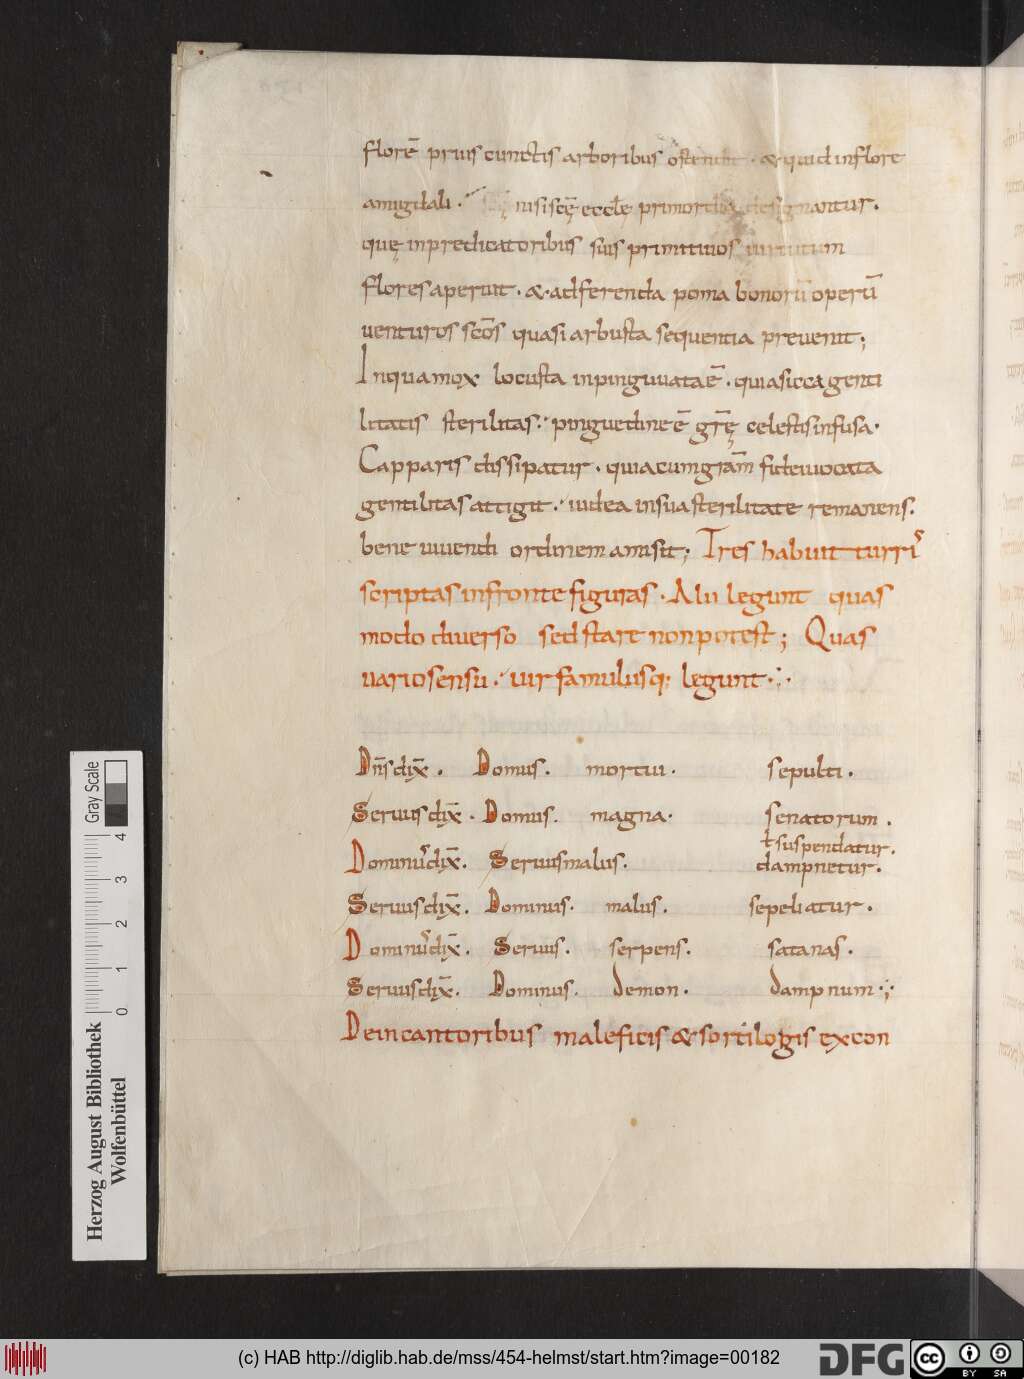 florē prius cunctis arboribus ostendit · & quid inflore
amigdali · nisi scę ecclę primordia designantur.
quę inpredicatoribus suis primitiuos uirtutum
flores aperuit · & adferenda poma bonorū operū
uenturos scōs quasi arbusta sequentia preuenit;
Inqua mox locusta inpinguuata ē · quia sicca genti
litatis sterilitas · pinguedine ē grę celestis infusa ·
Capparis dissipatur · quia cum grām fidei uocata
gentilitas attigit · iudea insua sterilitate remanens.
bene uiuendi ordinem amisit; Tres habuit turris
scriptas infronte figuras · Alii legunt quas
modo diuerso sed stare non potest; Quas
uario sensu · uir famulusq; legunt ·:·
Dn̄s dix̄ . Domus . mortui . sepulti .
Seruus dix̄ . Domus . magna . senatorum .
ł suspendatur .
Dominus dix̄ . Seruus malus . dampnetur .
Seruus dix̄ . Dominus . malus . sepeliatur .
Dominus dix̄ . Seruus . serpens . satanas .
Seruus dix̄ . Dominus . demon . dampnum ·;·
De incantoribus maleficis & sortilogis excon
Gray Scale
4
3
2
1
0
Herzog August Bibliothek
Wolfenbüttel
(c) HAB http://diglib.hab.de/mss/454-helmst/start.htm?image=00182
DFG
cc BY SA